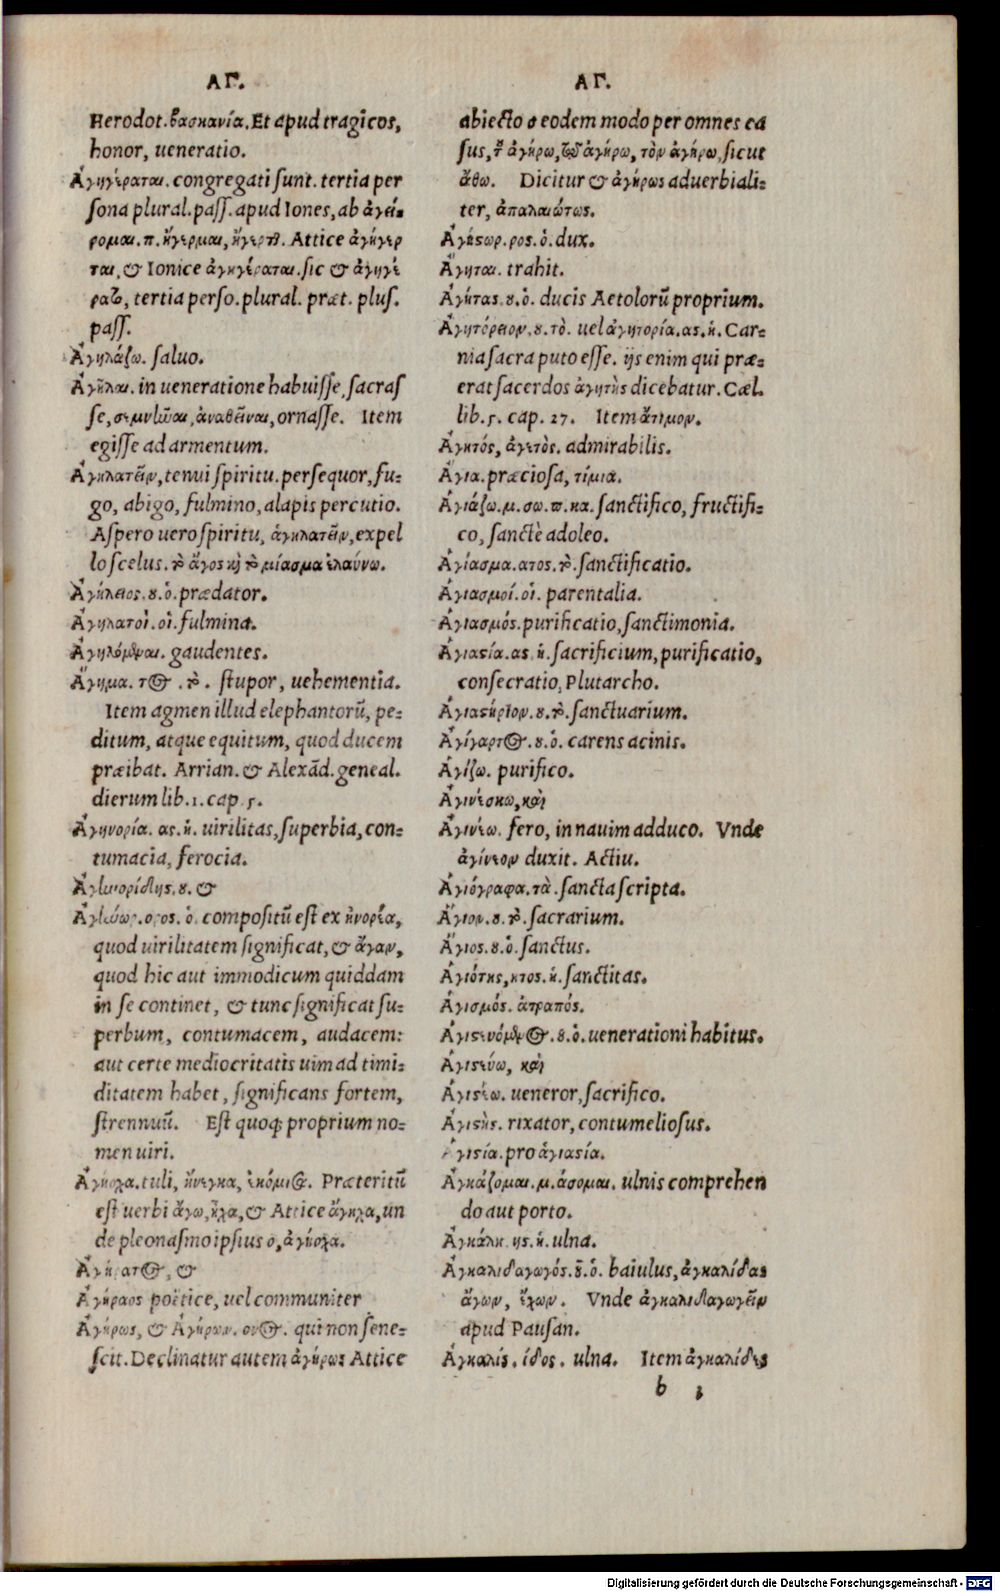 ΑΓ.
Herodot. βασκανία. Et apud tragicos,
honor, ueneratio.
Ἀγηγέραται. congregati sunt. tertia per
sona plural. pass. apud Iones, ab ἀγεί-
ρομαι. π. ἤγερμαι, ἤγερται. Attice ἀγήγερ
ται, & Ionice ἀγηγέραται. sic & ἀγηγέ
ρατο, tertia perso. plural. præt. plus.
pass.
Ἀγηλάζω. saluo.
Ἀγῆλαι. in ueneratione habuisse, sacras
se, σεμνῶαι, ἀναθεῖναι, ornasse. Item
egisse ad armentum.
Ἀγηλατεῖν, tenui spiritu. persequor, fu-
go, abigo, fulmino, alapis percutio.
Aspero uero spiritu, ἁγηλατεῖν, expel
lo scelus. τὸ ἄγος καὶ τὸ μίασμα ἐλαύνω.
Ἀγήλειος. ου. ὁ. prædator.
Ἀγηλατοὶ. οἱ. fulmina.
Ἀγηλόμεναι. gaudentes.
Ἄγημα. τος. τὸ. stupor, uehementia.
Item agmen illud elephantorū, pe-
ditum, atque equitum, quod ducem
præibat. Arrian. & Alexād. geneal.
dierum lib. 1. cap. 5.
Ἀγηνορία. ας. ἡ. uirilitas, superbia, con-
tumacia, ferocia.
Ἀγηνορίδης. ου. &
Ἀγήνωρ. ορος. ὁ. compositū est ex ἠνορέα,
quod uirilitatem significat, & ἄγαν,
quod hic aut immodicum quiddam
in se continet, & tunc significat su-
perbum, contumacem, audacem:
aut certe mediocritatis uim ad timi-
ditatem habet, significans fortem,
strennuū. Est quoq; proprium no-
men uiri.
Ἀγήοχα. tuli, ἤνεγκα, ἐκόμισα. Præteritū
est uerbi ἄγω, ἦχα, & Attice ἄγηχα, un
de pleonasmo ipsius ο, ἀγήοχα.
Ἀγήρατος, &
Ἀγήραος poëtice, uel communiter
Ἀγήρως, & Ἀγήρων. ονος. qui non sene-
scit. Declinatur autem ἀγήρως Attice
ΑΓ.
abiecto σ eodem modo per omnes ca
sus, τοῦ ἀγήρω, τῷ ἀγήρω, τὸν ἀγήρω, sicut
ἄθω. Dicitur & ἀγήρως aduerbiali-
ter, ἀπαλαιώτως.
Ἀγήτωρ. ρος. ὁ. dux.
Ἄγηται. trahit.
Ἀγήτας. ου. ὁ. ducis Aetolorū proprium.
Ἀγητόρειον. ου. τὸ. uel ἀγητορία. ας. ἡ. Car-
nia sacra puto esse. ijs enim qui præ-
erat sacerdos ἀγητὴς dicebatur. Cæl.
lib. 5. cap. 27. Item ἄτιμον.
Ἀγητός, ἀγετὸς. admirabilis.
Ἅγια. præciosa, τίμια.
Ἁγιάζω. μ. σω. π. κα. sanctifico, fructifi-
co, sanctè adoleo.
Ἁγίασμα. ατος. τὸ. sanctificatio.
Ἁγιασμοί. οἱ. parentalia.
Ἁγιασμός. purificatio, sanctimonia.
Ἁγιαστία. ας. ἡ. sacrificium, purificatio,
consecratio, Plutarcho.
Ἁγιαστήριον. ου. τὸ. sanctuarium.
Ἀγίγαρτος. ου. ὁ. carens acinis.
Ἁγίζω. purifico.
Ἀγινέσκω, καὶ
Ἀγινέω. fero, in nauim adduco. Vnde
ἀγίνεον duxit. Actiu.
Ἁγιόγραφα. τὰ. sancta scripta.
Ἅγιον. ου. τὸ. sacrarium.
Ἅγιος. ου. ὁ. sanctus.
Ἁγιότης, ητος. ἡ. sanctitas.
Ἀγισμός. ἀτραπός.
Ἁγιστευόμενος. ου. ὁ. uenerationi habitus.
Ἁγιστεύω, καὶ
Ἁγιστέω. ueneror, sacrifico.
Ἀγιστὴς. rixator, contumeliosus.
Ἁγιστία. pro ἁγιαστία.
Ἀγκάζομαι. μ. άσομαι. ulnis comprehen
do aut porto.
Ἀγκάλη. ης. ἡ. ulna.
Ἀγκαλιδαγωγός. οῦ. ὁ. baiulus, ἀγκαλίδας
ἄγων, ἔχων. Vnde ἀγκαλιδαγωγεῖν
apud Pausan.
Ἀγκαλίς. ίδος. ulna. Item ἀγκαλίδες
b 3
Digitalisierung gefördert durch die Deutsche Forschungsgemeinschaft - DFG